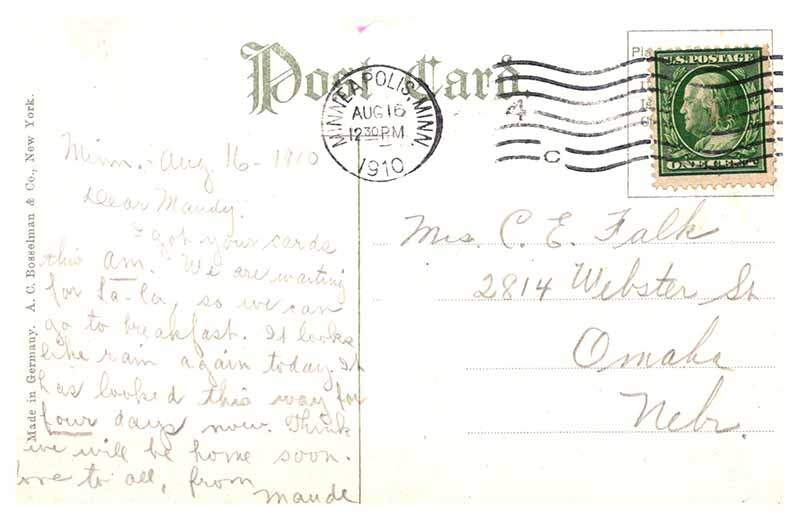 Post Card.
MINNEAPOLIS, MINN.
AUG 16
12 30 P.M.
1910
4
C
U.S. POSTAGE
ONE CENT
Made in Germany. A. C. Bosselman & Co., New York.
Minn. Aug 16 - 1910
Dear Maudy.
I got your cards
this am. We are waiting
for La-La, so we can
go to breakfast. It looks
like rain again today. It
has looked this way for
four days now. Think
we will be home soon.
love to all, from
Maude
Mrs. C. E. Falk
2814 Webster St
Omaha
Nebr.